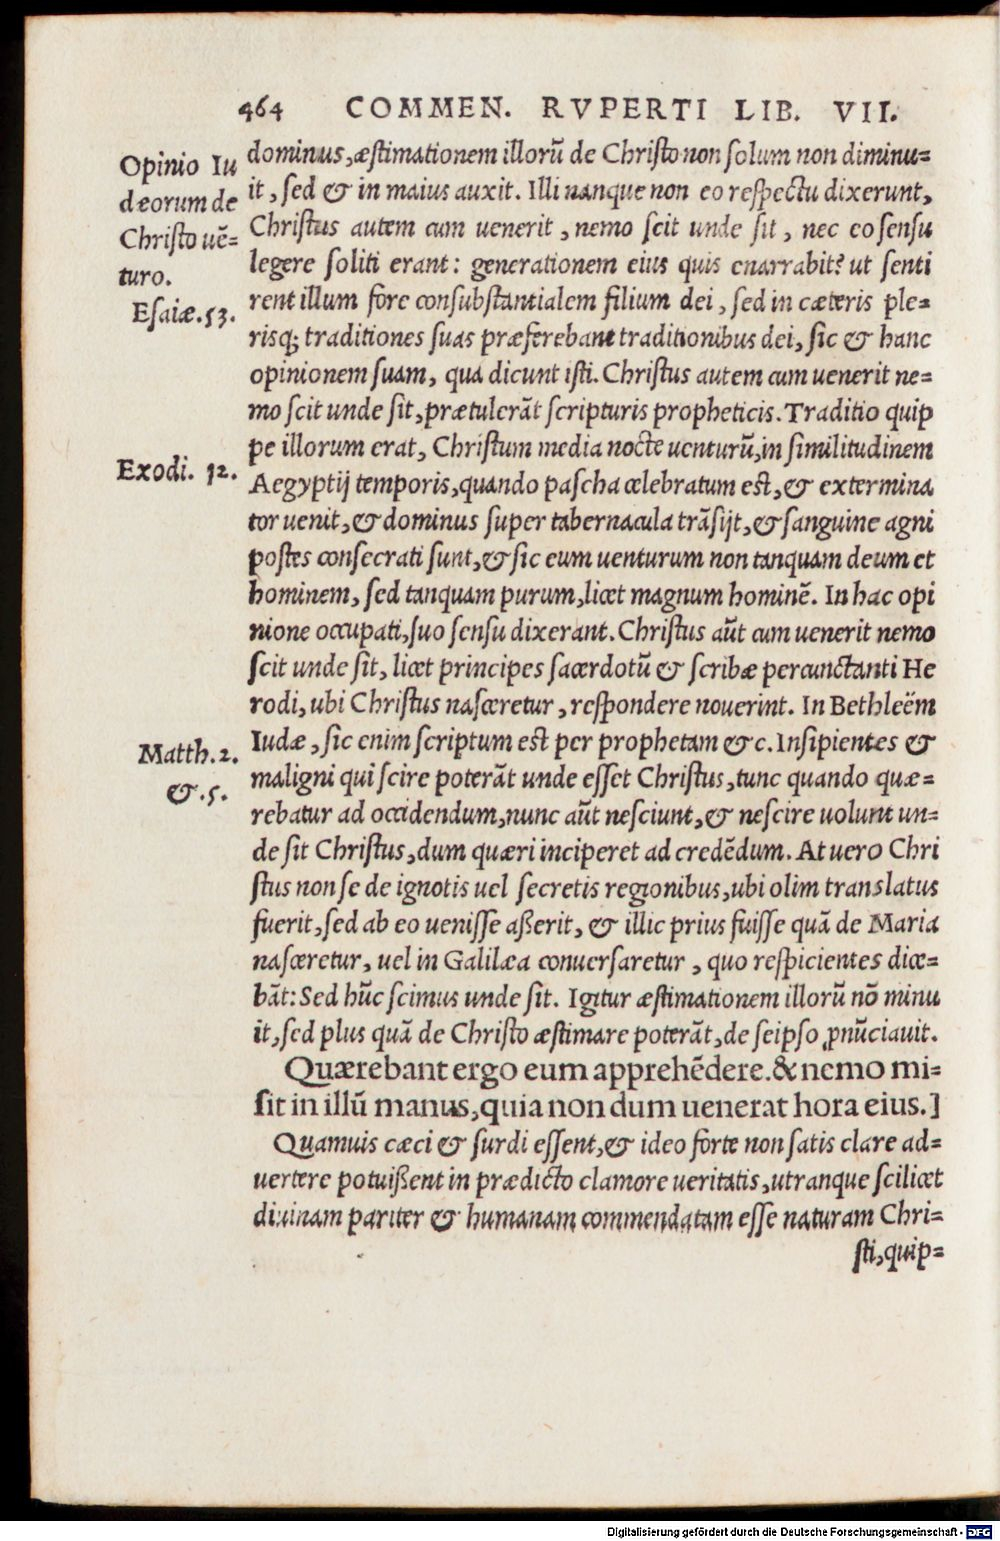 464 COMMEN. RVPERTI LIB. VII.
Opinio Iu
deorum de
Christo uẽ=
turo.
Esaiæ.53.
Exodi. 12.
Matth.2.
&.5.
dominus,æstimationem illorũ de Christo non solum non diminu=
it, sed & in maius auxit. Illi nanque non eo respectu dixerunt,
Christus autem cum uenerit, nemo scit unde sit, nec eo sensu
legere soliti erant: generationem eius quis enarrabit? ut senti
rent illum fore consubstantialem filium dei, sed in cæteris ple=
risq; traditiones suas præferebant traditionibus dei, sic & hanc
opinionem suam, qua dicunt isti. Christus autem cum uenerit ne=
mo scit unde sit, prætulerãt scripturis propheticis. Traditio quip
pe illorum erat, Christum media nocte uenturũ,in similitudinem
Aegyptij temporis,quando pascha celebratum est,& extermina
tor uenit,& dominus super tabernacula trãsijt,& sanguine agni
postes consecrati sunt,& sic eum uenturum non tanquam deum et
hominem, sed tanquam purum,licet magnum hominẽ. In hac opi
nione occupati,suo sensu dixerant. Christus aũt cum uenerit nemo
scit unde sit, licet principes sacerdotũ & scribæ percunctanti He
rodi,ubi Christus nasceretur, respondere nouerint. In Bethleëm
Iudæ, sic enim scriptum est per prophetam &c. Insipientes &
maligni qui scire poterãt unde esset Christus,tunc quando quæ=
rebatur ad occidendum,nunc aũt nesciunt,& nescire uolunt un=
de sit Christus,dum quæri inciperet ad credẽdum. At uero Chri
stus non se de ignotis uel secretis regionibus,ubi olim translatus
fuerit,sed ab eo uenisse aßerit, & illic prius fuisse quã de Maria
nasceretur, uel in Galilæa conuersaretur, quo respicientes dice=
bãt: Sed hũc scimus unde sit. Igitur æstimationem illorũ nõ minu
it,sed plus quã de Christo æstimare poterãt,de seipso ꝓnũciauit.
Quærebant ergo eum apprehẽdere.& nemo mi=
sit in illũ manus,quia non dum uenerat hora eius.]
Quamuis cæci & surdi essent,& ideo forte non satis clare ad=
uertere potuißent in prædicto clamore ueritatis,utranque scilicet
diuinam pariter & humanam commendatam esse naturam Chri=
sti,quip=
Digitalisierung gefördert durch die Deutsche Forschungsgemeinschaft - DFG